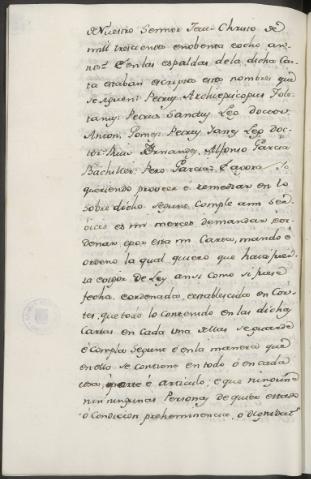 de Nuestro Sennor Jesu Chrisro de
mill trescientos enobenta eocho an-
nos. E en las espaldas dela dicha Car-
ta estaban escriptos estos nombres que
se siguen: Petrus Archiepiscopus Tole-
tanus: Petrus Sanctus, Leg. doctor,
Anton. Gomez: Petrus Yanes Leg. doc-
tor: Ruui Fernandez, Alfonso Garcia
Bachiller: Pero Garcia: E agora Yo
queriendo proveer e remediar en lo
sobredicho segunt comple a mi ser-
vicio es mi merced demandar e or-
denar, e por esta mi Carta, mando é
ordeno la qual quiero que haya fuer-
za e vigor de Ley ansi como si fuese
fecha, é ordenada, e establescida en Cor-
tes, que todo lo contenido en las dichas
Cartas en cada una dellas se guarde
é Compla segunt e en la manera que
en ello se contiene en todo ó en cada
cosa, é parte é articulo; e que ningunos
nin ningunas Personas de qualquier estado
ó Condicion prehemminencia, ó dignidat